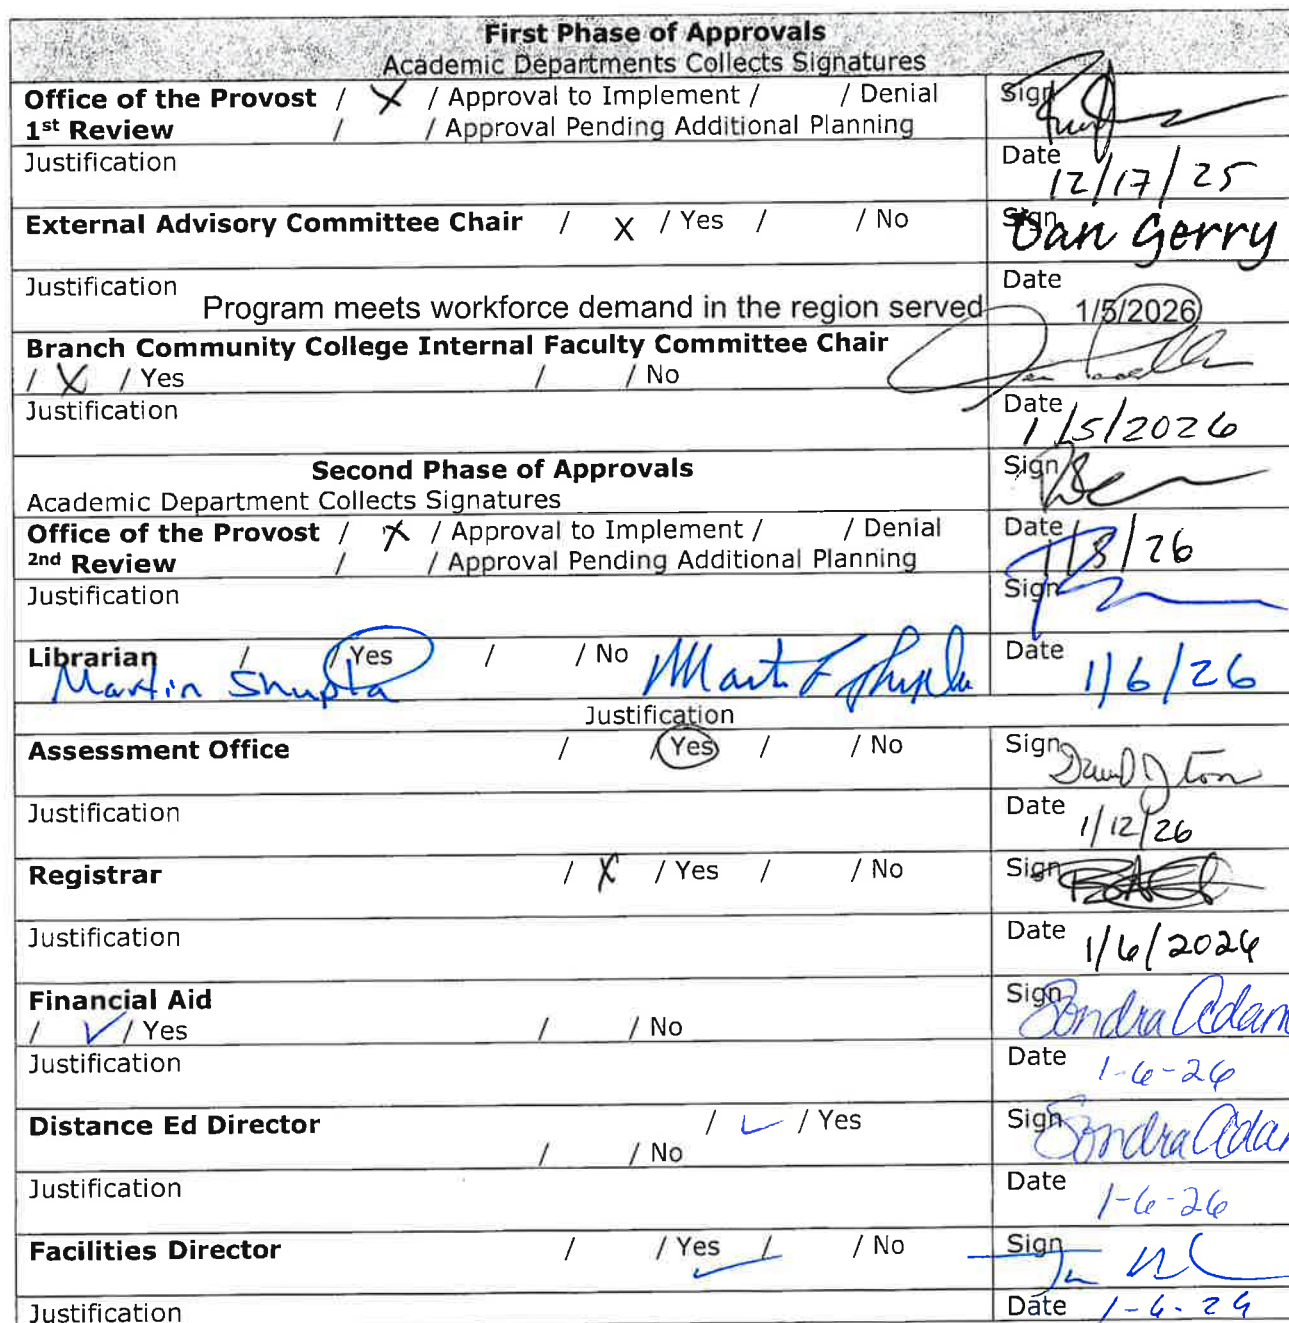 First Phase of Approvals
Academic Departments Collects Signatures
Office of the Provost / X / Approval to Implement / / Denial Sign
1st Review / / Approval Pending Additional Planning
Justification Date
12/17/25
External Advisory Committee Chair / X / Yes / / No Sign
Dan Gerry
Justification Date
Program meets workforce demand in the region served 1/5/2026
Branch Community College Internal Faculty Committee Chair
/ X / Yes / / No
Justification Date
1/5/2026
Second Phase of Approvals Sign
Academic Department Collects Signatures
Office of the Provost / X / Approval to Implement / / Denial Date
2nd Review / / Approval Pending Additional Planning /26
Justification Sign
Librarian / / Yes / / No Date
Martin Shupta 1/6/26
Justification
Assessment Office / / Yes / / No Sign
Justification Date
1/12/26
Registrar / X / Yes / / No Sign
Justification Date
1/6/2026
Financial Aid Sign
/ ✓ / Yes / / No Sondra Adam
Justification Date
1-6-26
Distance Ed Director / ✓ / Yes Sign
/ / No Sondra Adam
Justification Date
1-6-26
Facilities Director / / Yes / / No Sign
✓
Justification Date